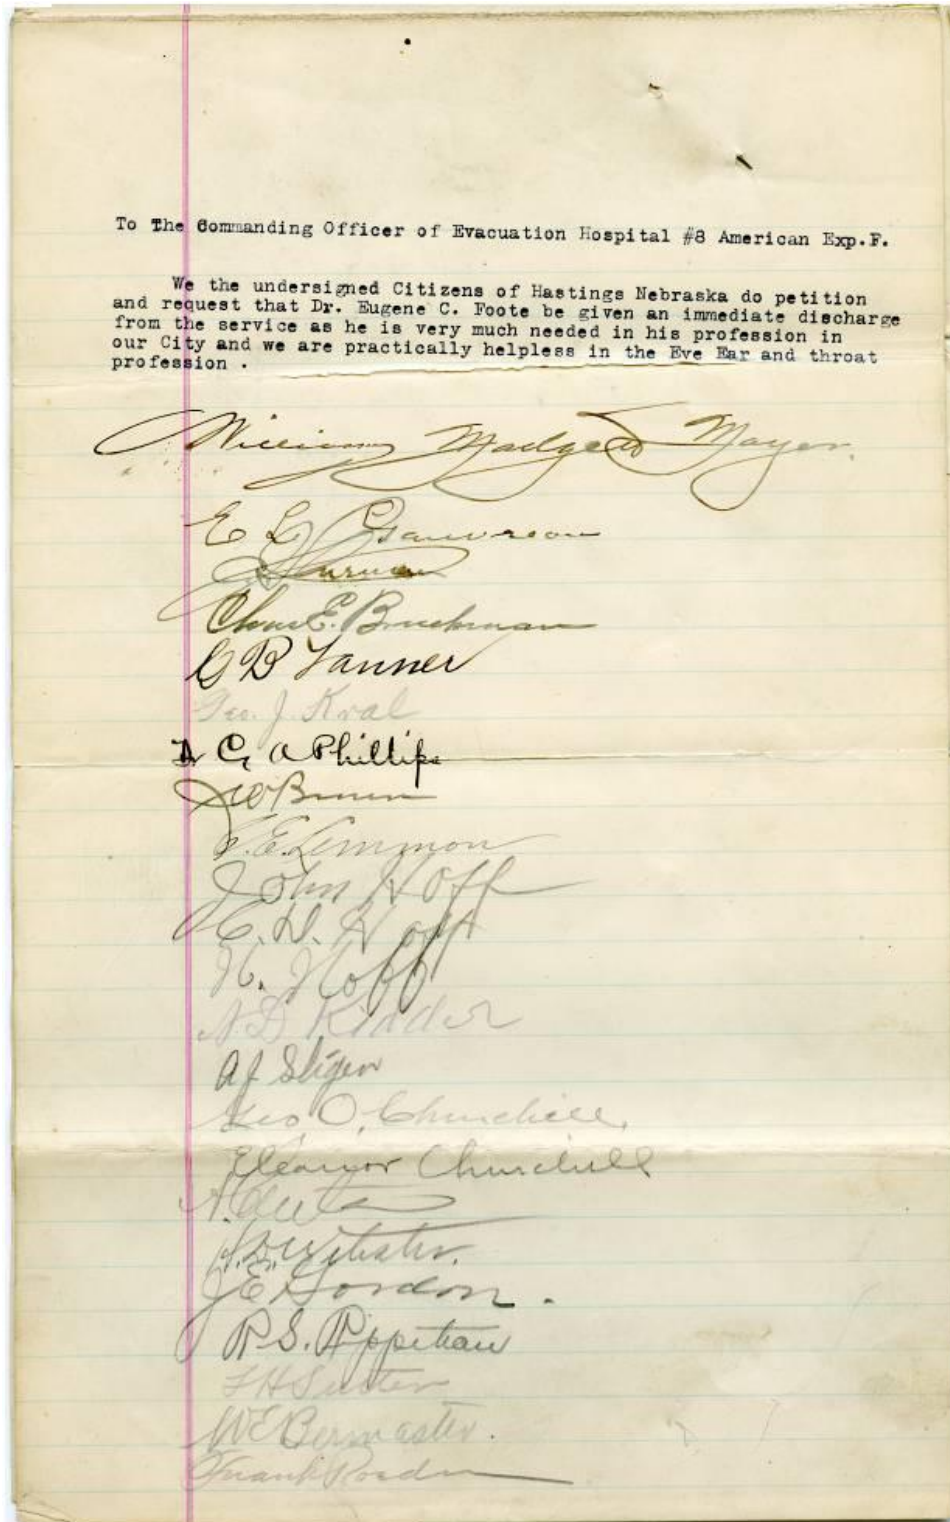 To The Commanding Officer of Evacuation Hospital #8 American Exp.F.
We the undersigned Citizens of Hastings Nebraska do petition
and request that Dr. Eugene C. Foote be given an immediate discharge
from the service as he is very much needed in his profession in
our City and we are practically helpless in the Eve Ear and throat
profession .
William Madgett Mayor.
E L
Chas E. Bruckman
G B Tanner
Geo. J. Kral
C, A Phillips
J W
E. Lemmon
John Hoff
H. D. Hoff
H. Hoff
A D Kidder
A J
Geo. O. Churchill.
Eleanor Churchill
A.
Webster.
J E Gordon .
R. S.
F H
W E Bermaster.
Frank